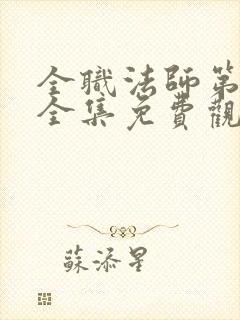 全職法師第
全集免費觀
蘇添星